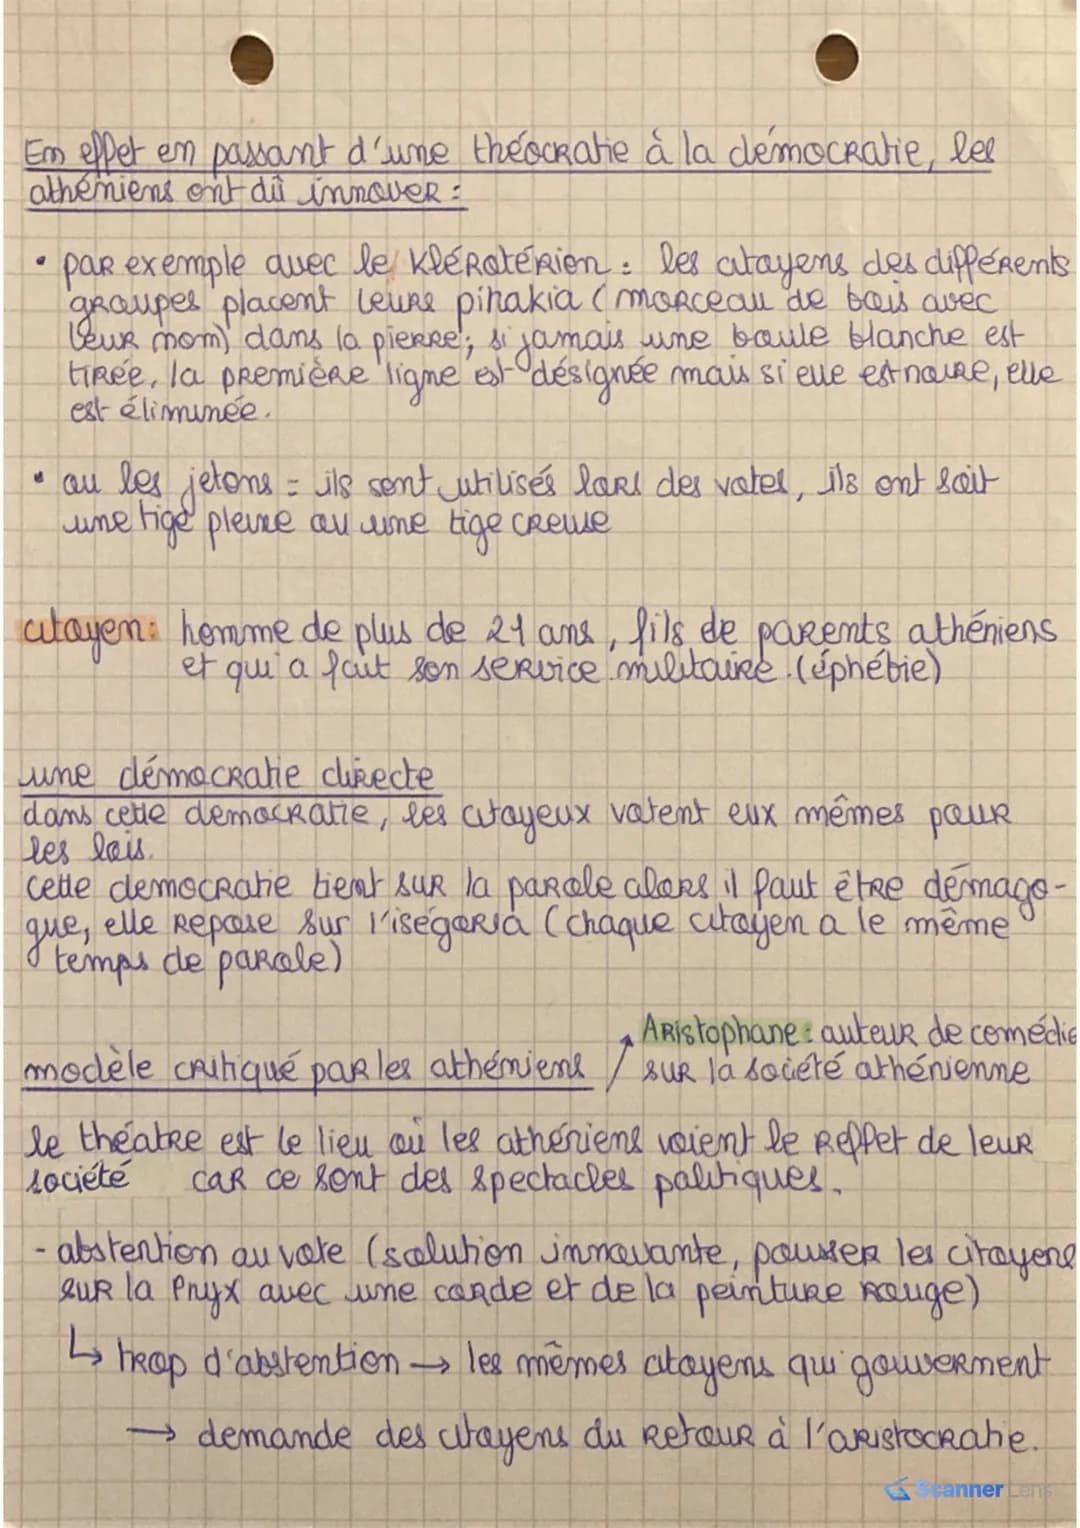 En effet en passant d'une théocratie à la démocratie, les
athéniens ont dû innover :
• par exemple avec le klérotérion : les citoyens des différents
groupes placent leurs pinakia (morceau de bois avec
leur nom) dans la pierre; si jamais une boule blanche est
tirée, la première ligne est désignée mais si elle est noire, elle
est éliminée.
• ou les jetons = ils sont utilisés lors des votes, ils ont soit
une tige pleine ou une tige creuse
citoyen: homme de plus de 21 ans, fils de parents athéniens
et qui a fait son service militaire. (éphébie)
une démocratie directe
dans cette democratie, les citoyeux votent eux mêmes pour
les lois.
cette democratie tient sur la parole alors il faut être démago-
gue, elle repose sur l'iségoria (chaque citoyen a le même
temps de parole)
Aristophane : auteur de comédie
modèle critiqué par les athéniens / sur la société athénienne
le théatre est le lieu où les athéniens voient le reffet de leur
société car ce sont des spectacles politiques.
- abstention au vote (solution innovante, pousser les citoyens
sur la Pnyx avec une corde et de la peinture rouge)
↳ trop d'abstention → les mêmes citoyens qui gouvernent
→ demande des citoyens du retour à l'aristocratie.
Scanner Lens